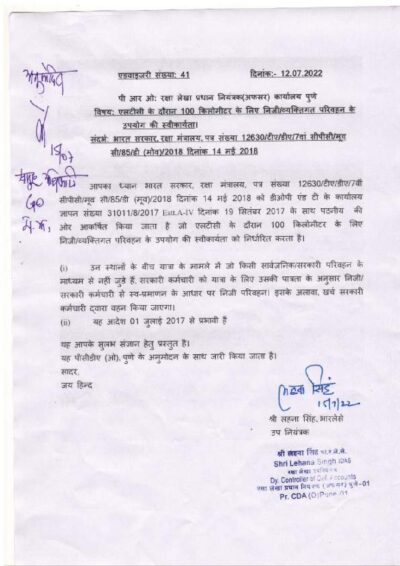 एडवाइजरी संख्या: 41 दिनांक:- 12.07.2022
पी आर ओ: रक्षा लेखा प्रधान नियंत्रक(अफसर) कार्यालय पुणे
विषय: एलटीसी के दौरान 100 किलोमीटर के लिए निजी/व्यक्तिगत परिवहन के
उपयोग की स्वीकार्यता।
संदर्भ: भारत सरकार, रक्षा मंत्रालय, पत्र संख्या 12630/टीए/डीए/7वां सीपीसी/मूव
सी/85/डी (मोव)/2018 दिनांक 14 मई 2018
आपका ध्यान भारत सरकार, रक्षा मंत्रालय, पत्र संख्या 12630/टीए/डीए/7वीं
सीपीसी/मूव सी/85/डी (मूव)/2018 दिनांक 14 मई 2018 को डीओपी एंड टी के कार्यालय
ज्ञापन संख्या 31011/8/2017 Estt.A-IV दिनांक 19 सितंबर 2017 के साथ पठनीय की
ओर आकर्षित किया जाता है जो एलटीसी के दौरान 100 किलोमीटर के लिए
निजी/व्यक्तिगत परिवहन के उपयोग की स्वीकार्यता को निर्धारित करता है।
(i) उन स्थानों के बीच यात्रा के मामले में जो किसी सार्वजनिक/सरकारी परिवहन के
माध्यम से नहीं जुड़े हैं, सरकारी कर्मचारी को यात्रा के लिए उसकी पात्रता के अनुसार निजी/
सरकारी कर्मचारी से स्व-प्रमाणन के आधार पर निजी परिवहन। इसके अलावा, खर्च सरकारी
कर्मचारी द्वारा वहन किया जाएगा।
(ii) यह आदेश 01 जुलाई 2017 से प्रभावी हैं
यह आपके सुलभ संज्ञान हेतु प्रस्तुत है।
यह पीसीडीए (ओ), पुणे के अनुमोदन के साथ जारी किया जाता है।
सादर,
जय हिन्द
15/7/22
श्री लहना सिंह, भारलेसे
उप नियंत्रक
श्री लहना सिंह भा.र.ले.से.
Shri Lehana Singh IDAS
रक्षा लेखा उपनियंत्रक
Dy. Controller of Def. Accounts
रक्षा लेखा प्रधान नियंत्रक (अफसर) पुणे-01
Pr. CDA (O) Pune-01